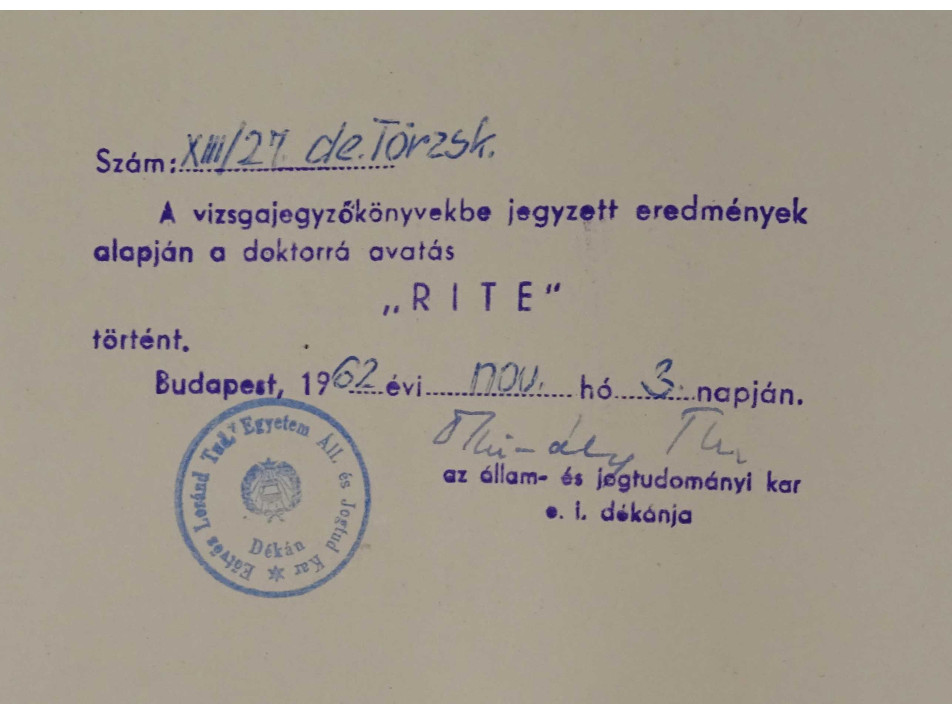 Szám: XIII/27. de. Törzsk.
A vizsgajegyzőkönyvekbe jegyzett eredmények
alapján a doktorrá avatás
„R I T E"
történt.
Budapest, 1962 évi nov. hó 3. napján.
az állam- és jogtudományi kar
e. i. dékánja
Eötvös Loránd Tud. Egyetem Áll. és Jogtud Kar
Dékán